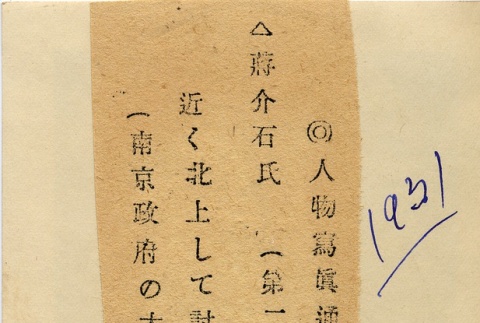 ◎人物寫眞通
△蔣介石氏 (第一
近く北上して討
(南京政府の
1931